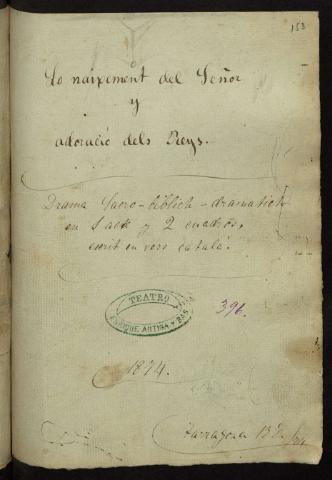 153
Lo naixement del Señor
y
adoració dels Reys.
Drama Sacro-bíblich-dramatich
en 1 acte y 2 cuadros,
escrit en vers catalá.
TEATRO
ENRIQUE ARTISA Y BAS
396.
1874.
Tarragona 13